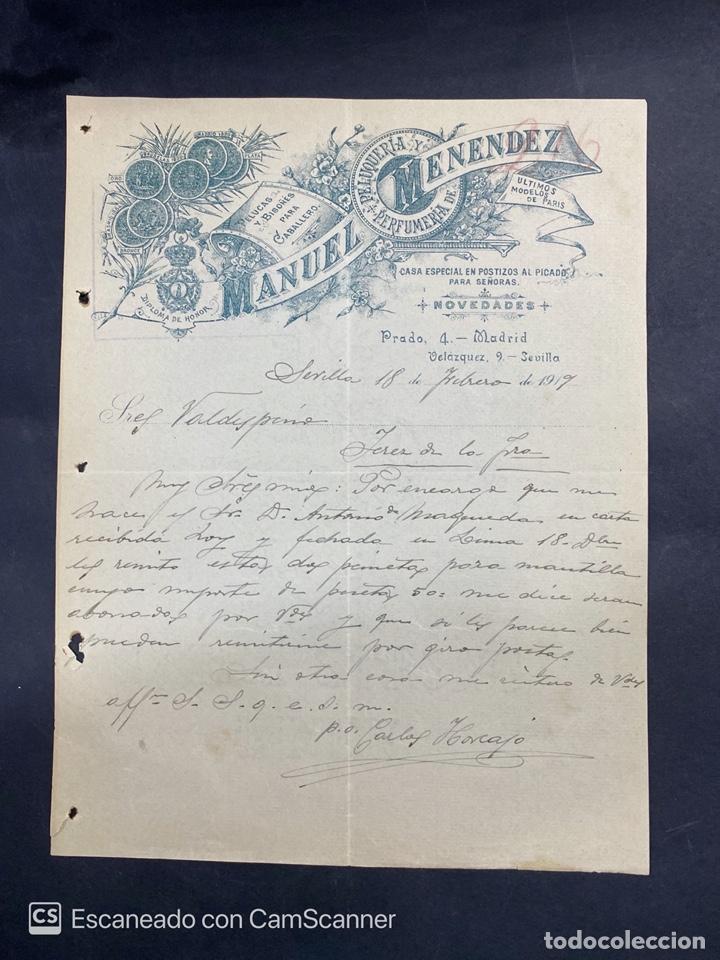 PELUQUERÍA Y
PERFUMERÍA DE
MANUEL MENENDEZ
PELUCAS
Y
BISOÑES
PARA
CABALLERO.
ULTIMOS
MODELOS
DE PARIS
ORO
BRONCE
PLATA
DIPLOMA DE HONOR
CASA ESPECIAL EN POSTIZOS AL PICADO
PARA SEÑORAS.
NOVEDADES
Prado, 4.—Madrid
Velázquez, 9.—Sevilla
Sevilla 18 de Febrero de 1917
Sres Valdespino
Jerez de la Fra
Muy Sres mios: Por encargo que me
hace el Sr. D. Antonio de Maqueda en carta
recibida hoy y fechada en Lima 18 Dbre
les remito estas dos peinetas para mantilla
cuyo importe de pesetas 50= me dice seran
abonadas por Vdes y que si les parece bien
pueden remitirme por giro postal.
Sin otra cosa me reitero de Vdes
affmo S. S. q. e. s. m.
p.o. Carlos Horcajo
CS Escaneado con CamScanner
todocoleccion